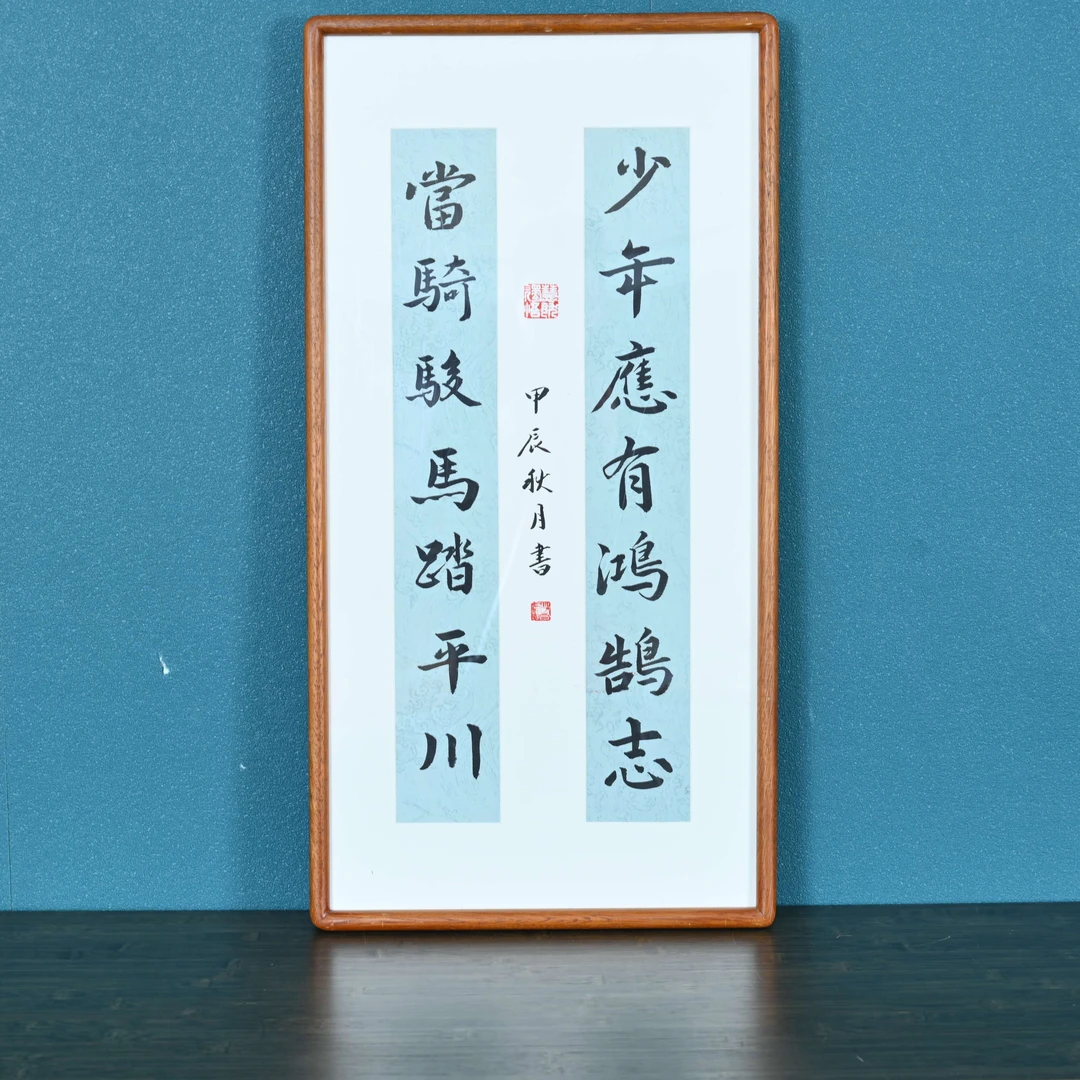 少年應有鴻鵠志
當騎駿馬踏平川
甲辰秋月書